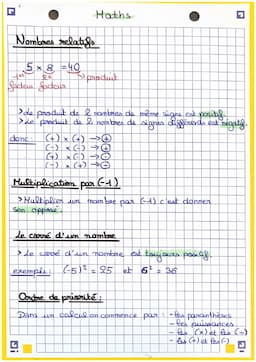 Maths
Nombres relatifs
5 x 8 = 40
facteur facteur produit
> Le produit de 2 nombres de même signe est positif
> Le produit de 2 nombres de signes différents est négatif
donc : (+) x (+) → (+)
(-) x (-) → (+)
(+) x (-) → (-)
(-) x (+) → (-)
Multiplication par (-1)
> Multiplier un nombre par (-1) c'est donner
son opposé.
Le carré d'un nombre
> Le carré d'un nombre est toujours positif.
exemple : (-5)² = 25 et 6² = 36
Ordre de priorité :
Dans un calcul on commence par : - les paranthèses
- les puissances
- les (x) et les (÷)
- les (+) et les (-)